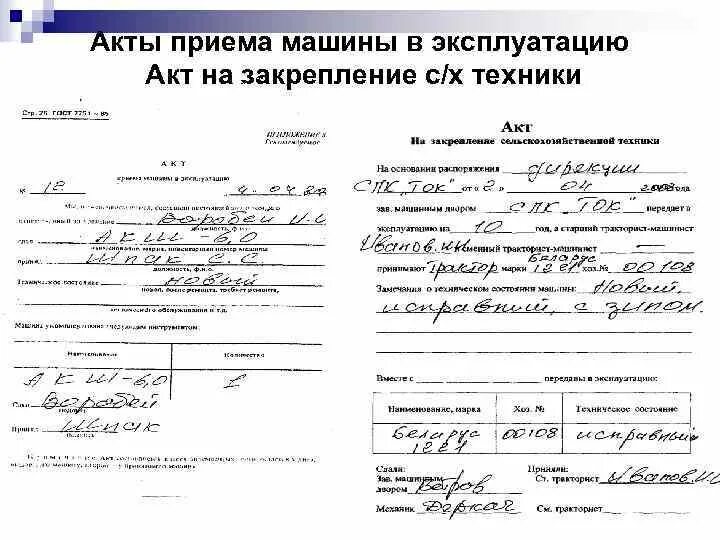 Акты приема машины в эксплуатацию
Акт на закрепление с/х техники
Стр. 26 ГОСТ 7751-85
ПРИЛОЖЕНИЕ 8
Рекомендуемое
АКТ
приема машины в эксплуатацию
№ 12
Воробей И.И
должность, ф.и.о.
сдал АКШ-6,0
наименование, марка, инвентарный номер машины
принял Шпак С.С.
должность, ф.и.о.
Техническое состояние новый
новая, после ремонта, требует ремонта,
технического обслуживания и т.д.
Машина укомплектована следующим инструментом:
Наименование Количество
АКШ-6,0 1
Сдал Воробей
подпись
Принял Шпак
подпись
Акт
На закрепление сельскохозяйственной техники
На основании распоряжения дирекции
СПК "ТОК" от « 2 » 04 2008 года
зав. машинным двором СПК "ТОК" передает в
эксплуатацию на 10 год, а старший тракторист-машинист
Иванов И.И. сменный тракторист-машинист
принимают трактор марки Беларус 1221 хоз.№ 00108
Замечания о техническом состоянии машины: Новый,
исправный, с зипом.
Вместе с переданы в эксплуатацию:
Наименование, марка Хоз. № Техническое состояние
Беларус 1221 00108 исправный
Сдали: Приняли:
Зав. машинным Ст. тракторист Иванов И.И.
двором Ветров
Механик Деркач См. тракторист